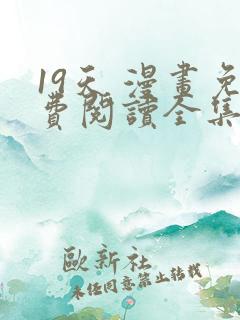 19天 漫畫免
費閱讀全集
歐新社
未經同意禁止轉載